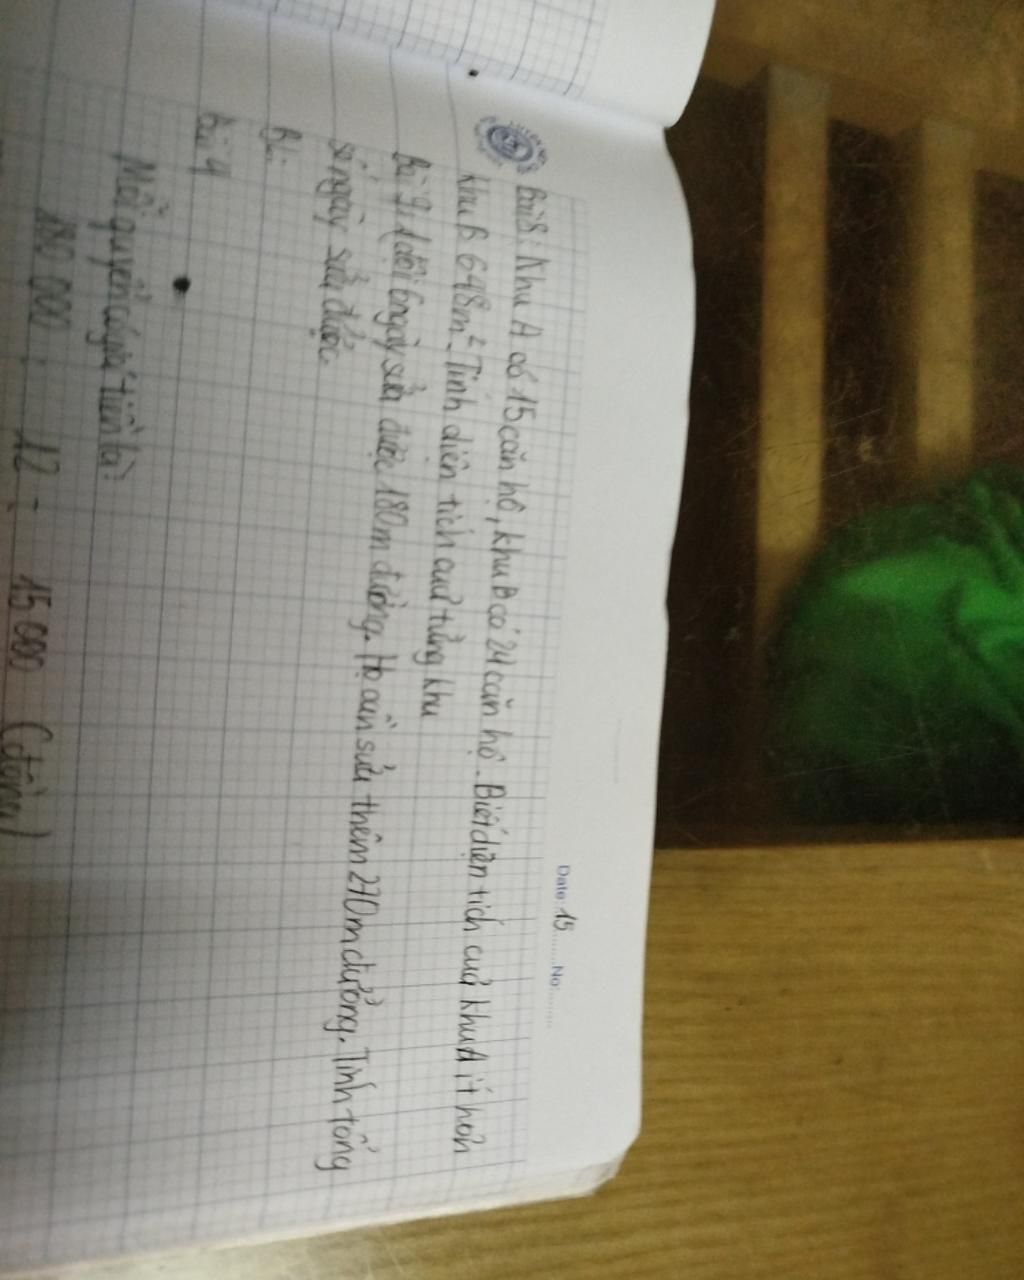 Date: 15 No:
Bài 8: Khu A có 15 căn hộ, khu B có 24 căn hộ. Biết diện tích cuả khu A ít hơn
khu B 648m². Tính diện tích cuả từng khu
Bài 9: 1 đội 6 ngày sửa được 180m đường. Họ cần sửa thêm 270m đường. Tính tổng
số ngày sửa được
Bài 4
Mỗi quyển có giá tiền là:
180 000 : 12 = 15 000 (đồng)